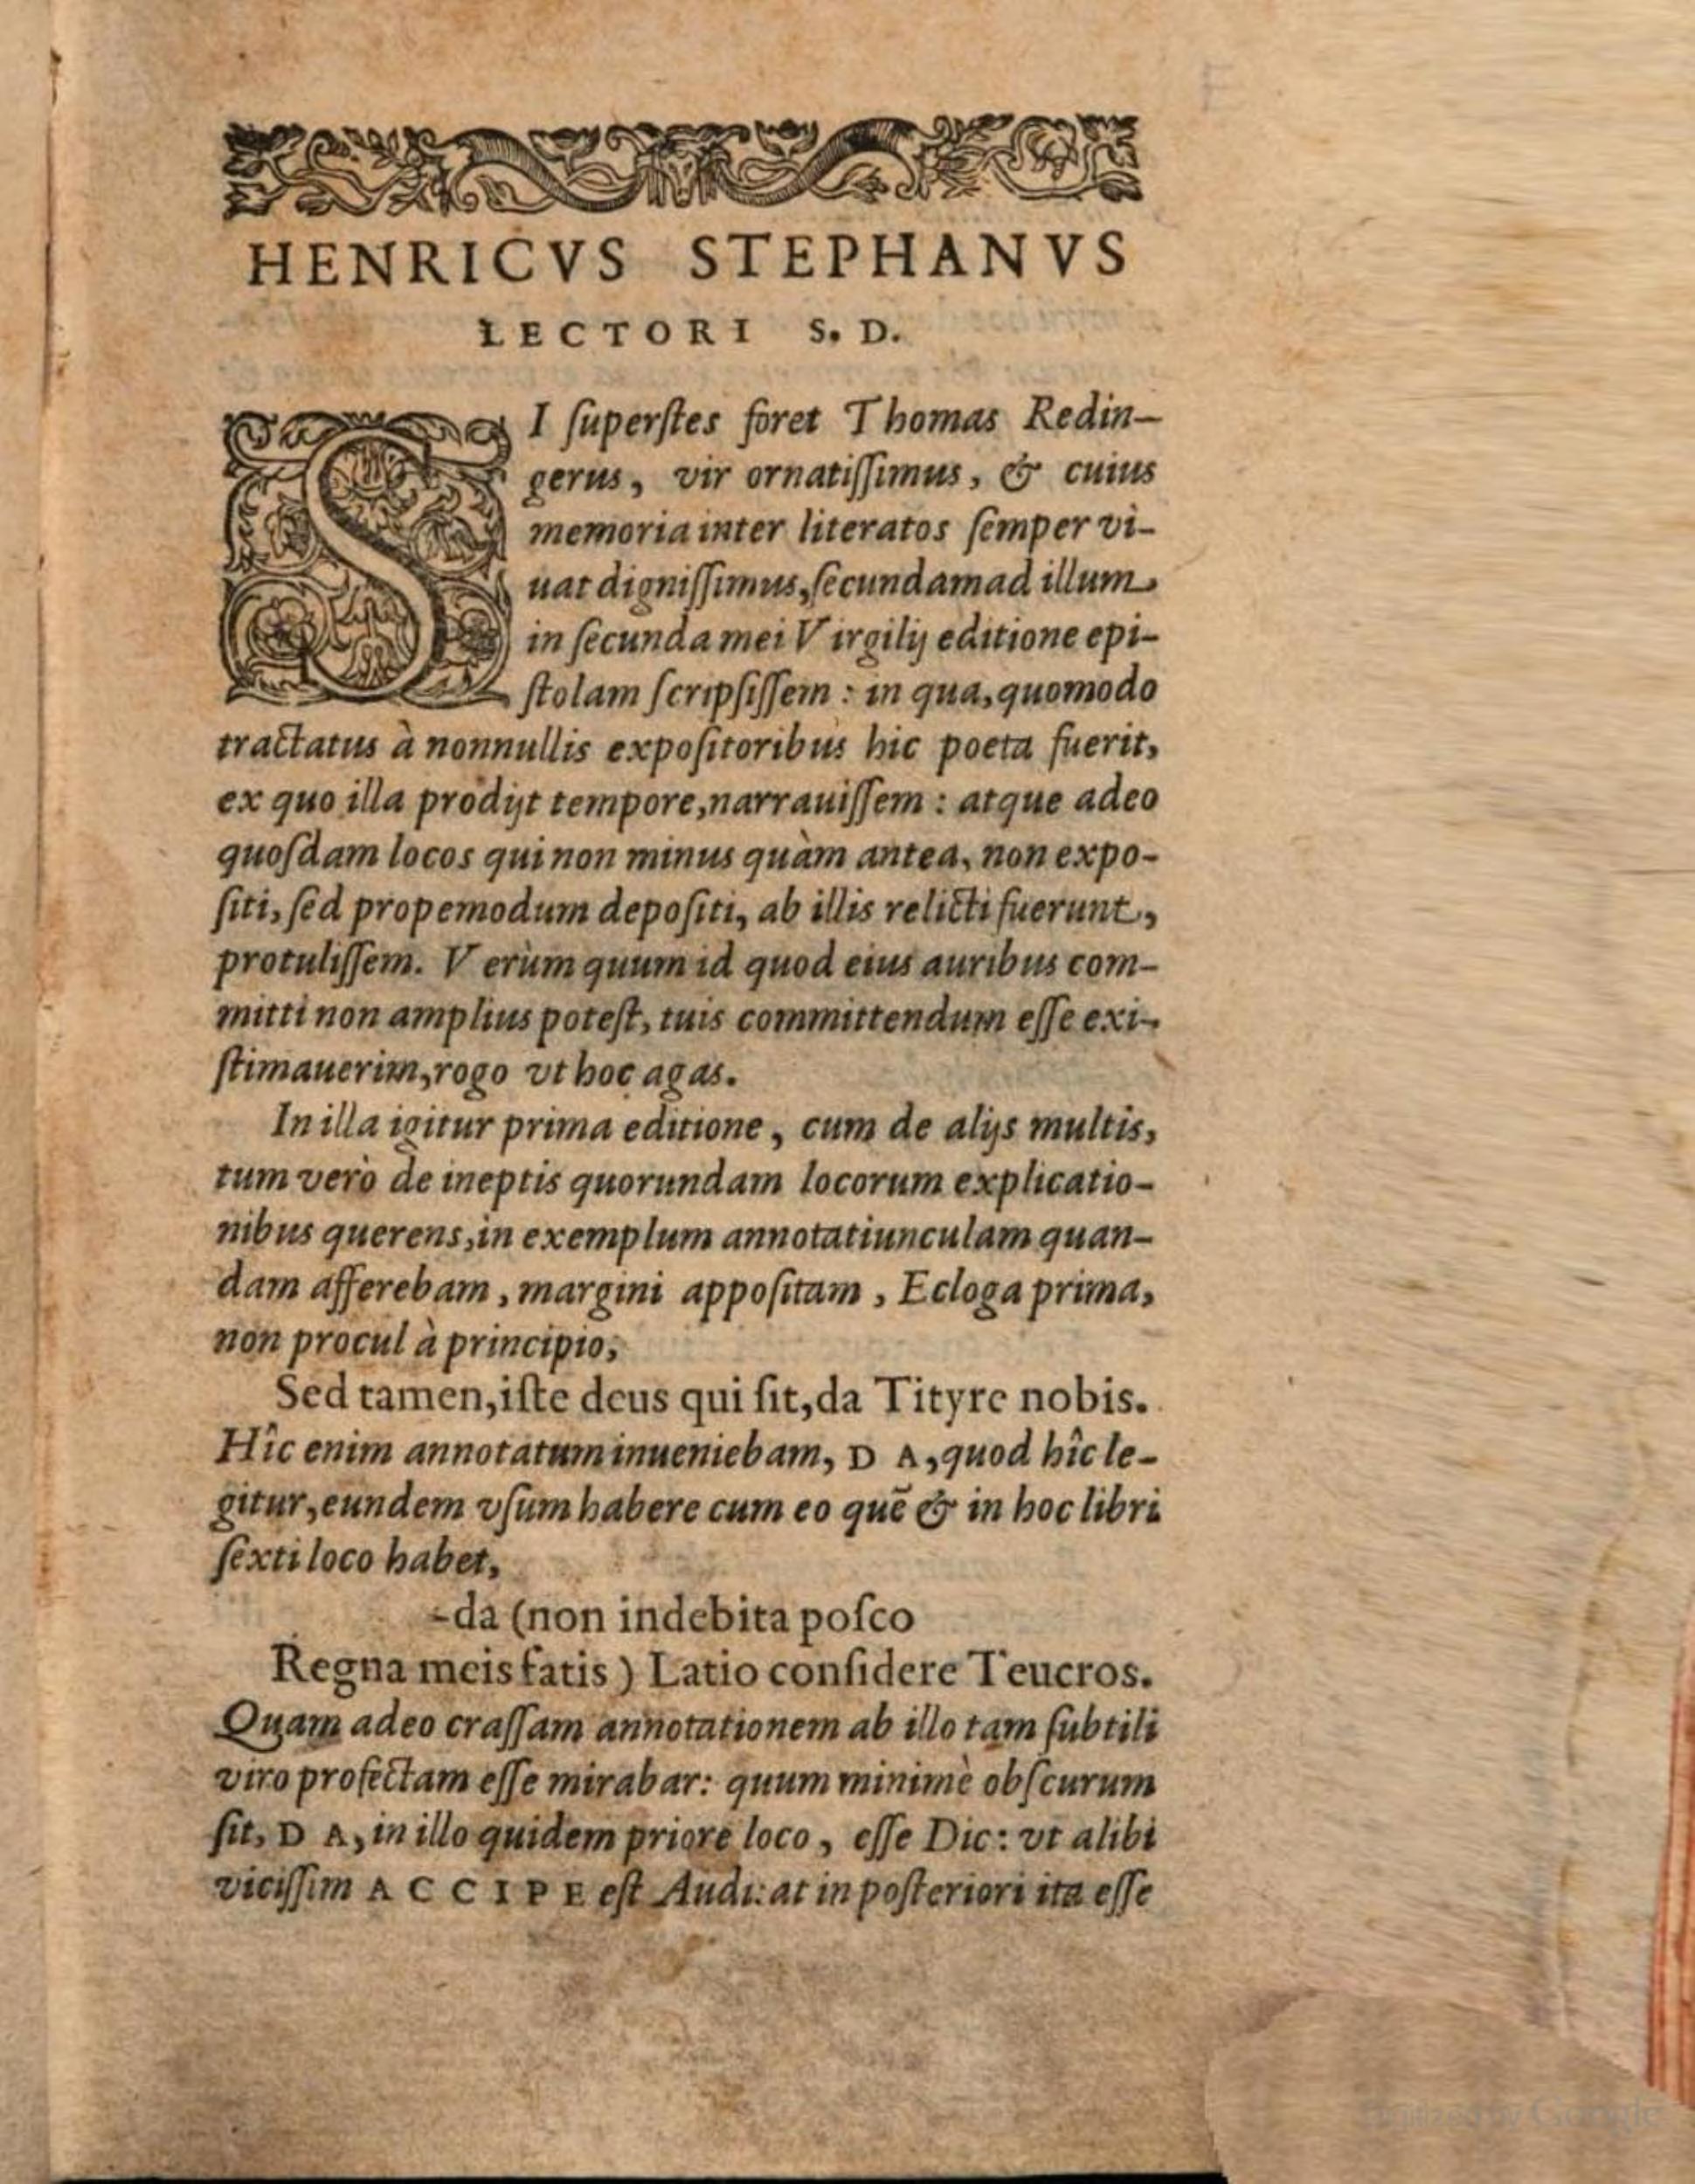 HENRICVS STEPHANVS
LECTORI S. D.
SI ſuperſtes foret Thomas Redin-
gerus, vir ornatiſſimus, & cuius
memoria inter literatos ſemper vi-
uat digniſſimus, ſecundam ad illum
in ſecunda mei Virgilij editione epi-
ſtolam ſcripſiſſem : in qua, quomodo
tractatus à nonnullis expoſitoribus hic poeta fuerit,
ex quo illa prodijt tempore, narrauiſſem : atque adeo
quoſdam locos qui non minus quàm antea, non expo-
ſiti, ſed propemodum depoſiti, ab illis relicti fuerunt,
protuliſſem. Verùm quum id quod eius auribus com-
mitti non amplius poteſt, tuis committendum eſſe exi-
ſtimauerim, rogo vt hoc agas.
In illa igitur prima editione, cum de alijs multis,
tum verò de ineptis quorundam locorum explicatio-
nibus querens, in exemplum annotatiunculam quan-
dam afferebam, margini appoſitam, Ecloga prima,
non procul à principio,
Sed tamen, iſte deus qui ſit, da Tityre nobis.
Hîc enim annotatum inueniebam, D A, quod hîc le-
gitur, eundem vſum habere cum eo quē & in hoc libri
ſexti loco habet,
-da (non indebita poſco
Regna meis fatis) Latio conſidere Teucros.
Quam adeo craſſam annotationem ab illo tam ſubtili
viro profectam eſſe mirabar: quum minimè obſcurum
ſit, D A, in illo quidem priore loco, eſſe Dic: vt alibi
viciſſim A C C I P E eſt Audi: at in poſteriori ita eſſe
Digitized by Google